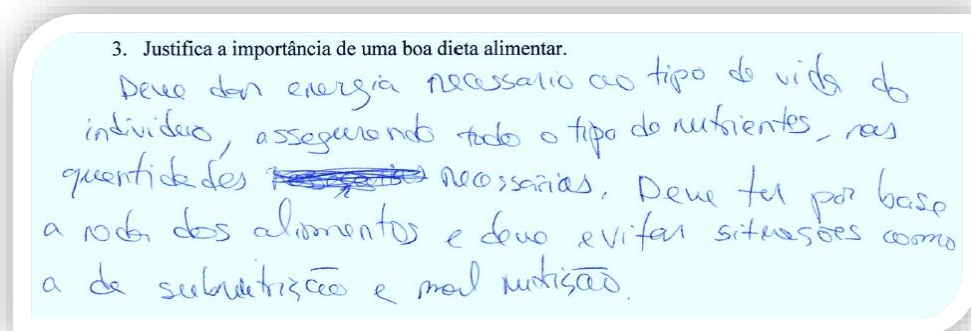 3. Justifica a importância de uma boa dieta alimentar.
Deve dar energia necessário ao tipo de vida do
individuo, assegurando todo o tipo de nutrientes, nas
quantidades necessárias. Deve ter por base
a roda dos alimentos e deve evitar situações como
a de subnutrição e mal nutrição.